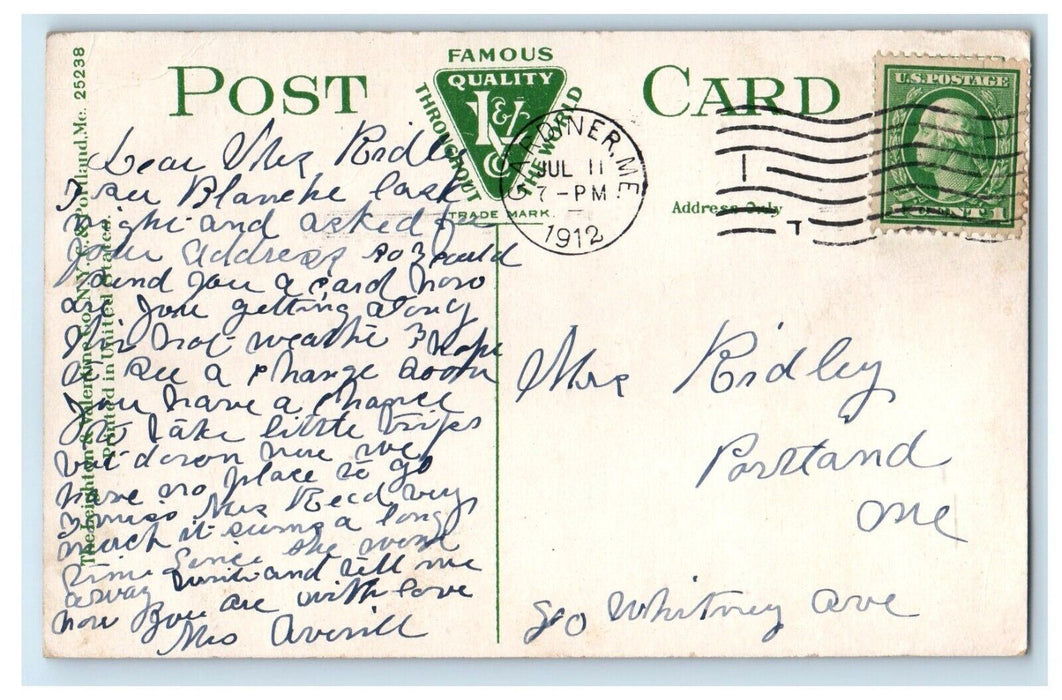 FAMOUS
QUALITY
THROUGHOUT
THE WORLD
L&V
Co
TRADE MARK.
POST CARD
Address Only
GARDINER, ME.
JUL 11
7-PM
1912
U.S. POSTAGE
1 CENT 1
The Leighton & Valentine Co., N.Y. & Portland, Me. 25238
Printed in United States.
Dear Mrs Ridley
I saw Blanche last
night and asked for
your address so I could
send you a card how
are you getting along
this hot weathe I hope
to see a change soon
you have a chance
to take little trips
but down here we
have no place to go
I miss Mrs Reed very
much it seems a long
time since she went
away write and tell me
how you are with love
Mrs Averill
Mrs Ridley
Portland
Me
90 Whitney Ave